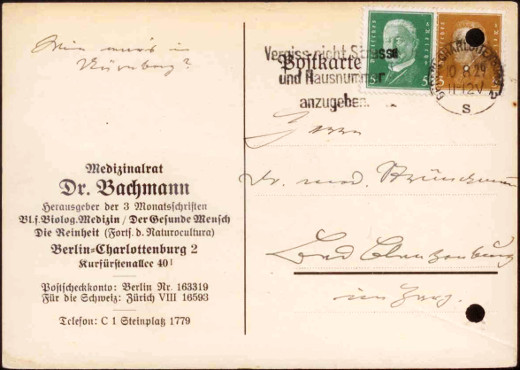 Nürnberg?
Vergiss nicht Strasse
Postkarte
und Hausnummer
anzugeben.
5
CHARLOTTENBURG 2
8.29
11-12V
S
Herrn
Dr. med.
Bad Blankenburg
im Harz.
Medizinalrat
Dr. Bachmann
Herausgeber der 3 Monatsschriften
Bl.f.Biolog.Medizin / Der Gesunde Mensch
Die Reinheit (Forts. d. Naturocultura)
Berlin-Charlottenburg 2
Kurfürstenallee 40
Postscheckkonto: Berlin Nr. 163319
Für die Schweiz: Zürich VIII 16593
Telefon: C 1 Steinplatz 1779